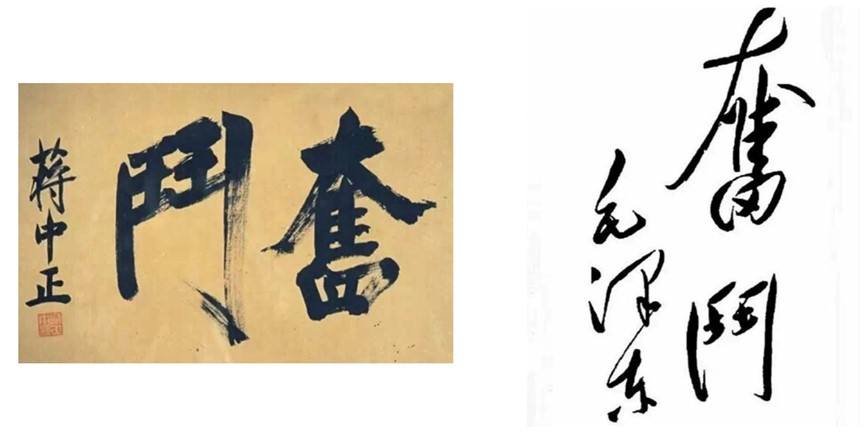 奮鬥
蔣中正
奮鬥
毛澤东